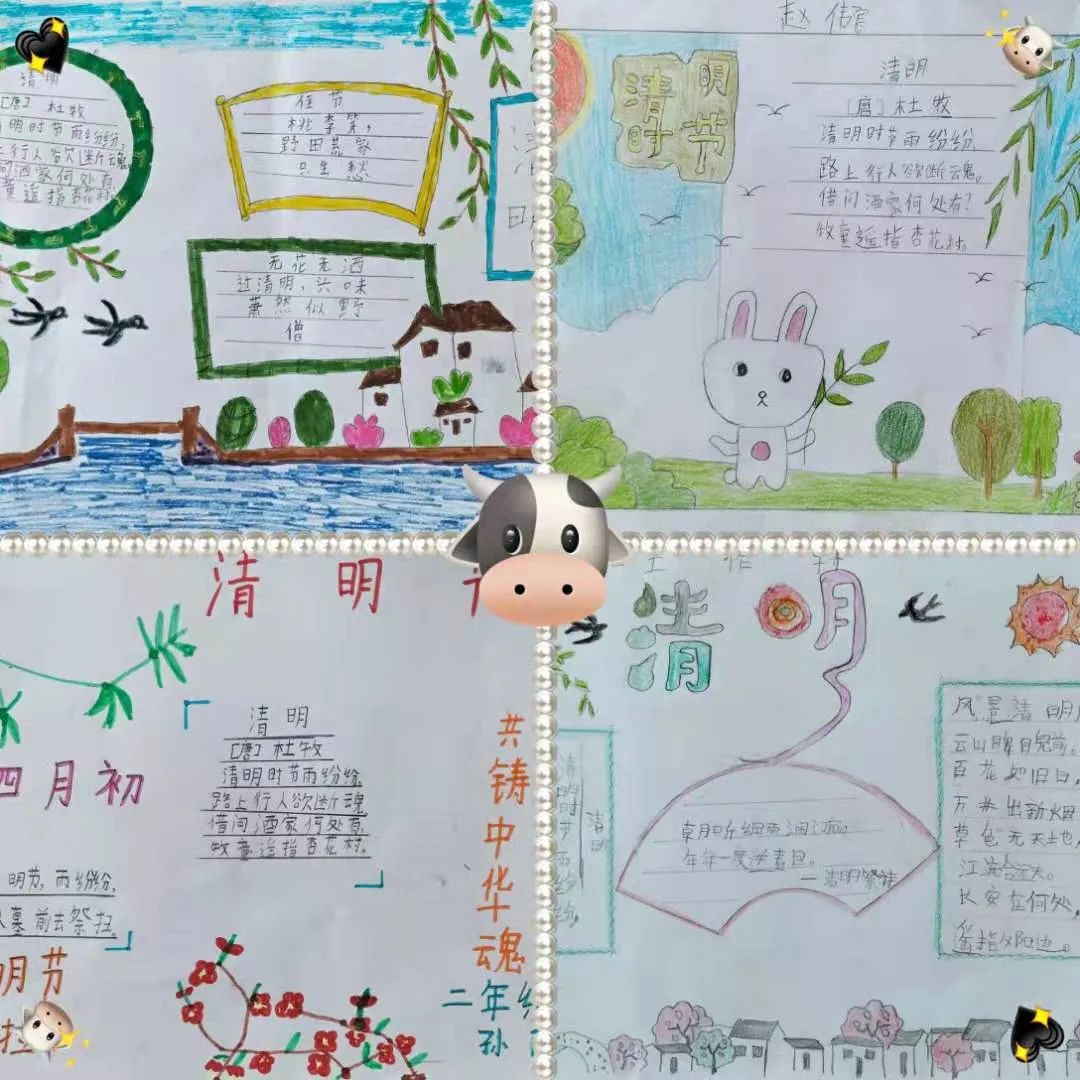 清明
[唐] 杜牧
明时节雨纷纷,
上行人欲断魂
问酒家何处有
童遥指杏花村
佳节
桃李笑,
野田荒冢
只生愁
无花无酒
过清明,兴味
萧然似野
僧
清
明
赵伟
清明
时节
清明
[唐]杜牧
清明时节雨纷纷
路上行人欲断魂。
借问酒家何处有?
牧童遥指杏花村。
清明
四月初
清明
[唐]杜牧
清明时节雨纷纷,
路上行人欲断魂
借问酒家何处有
牧童遥指杏花村。
明节,雨纷纷,
墓前去祭扫
明节
扫
共铸中华魂
二年级
孙
清明
清明
清明时节雨纷纷,
年年一度送青日。
风景清明
云山睥睨前。
百花如旧日,
万井出新烟
草色无天地,
江
长安在何处,
遥指夕阳边。